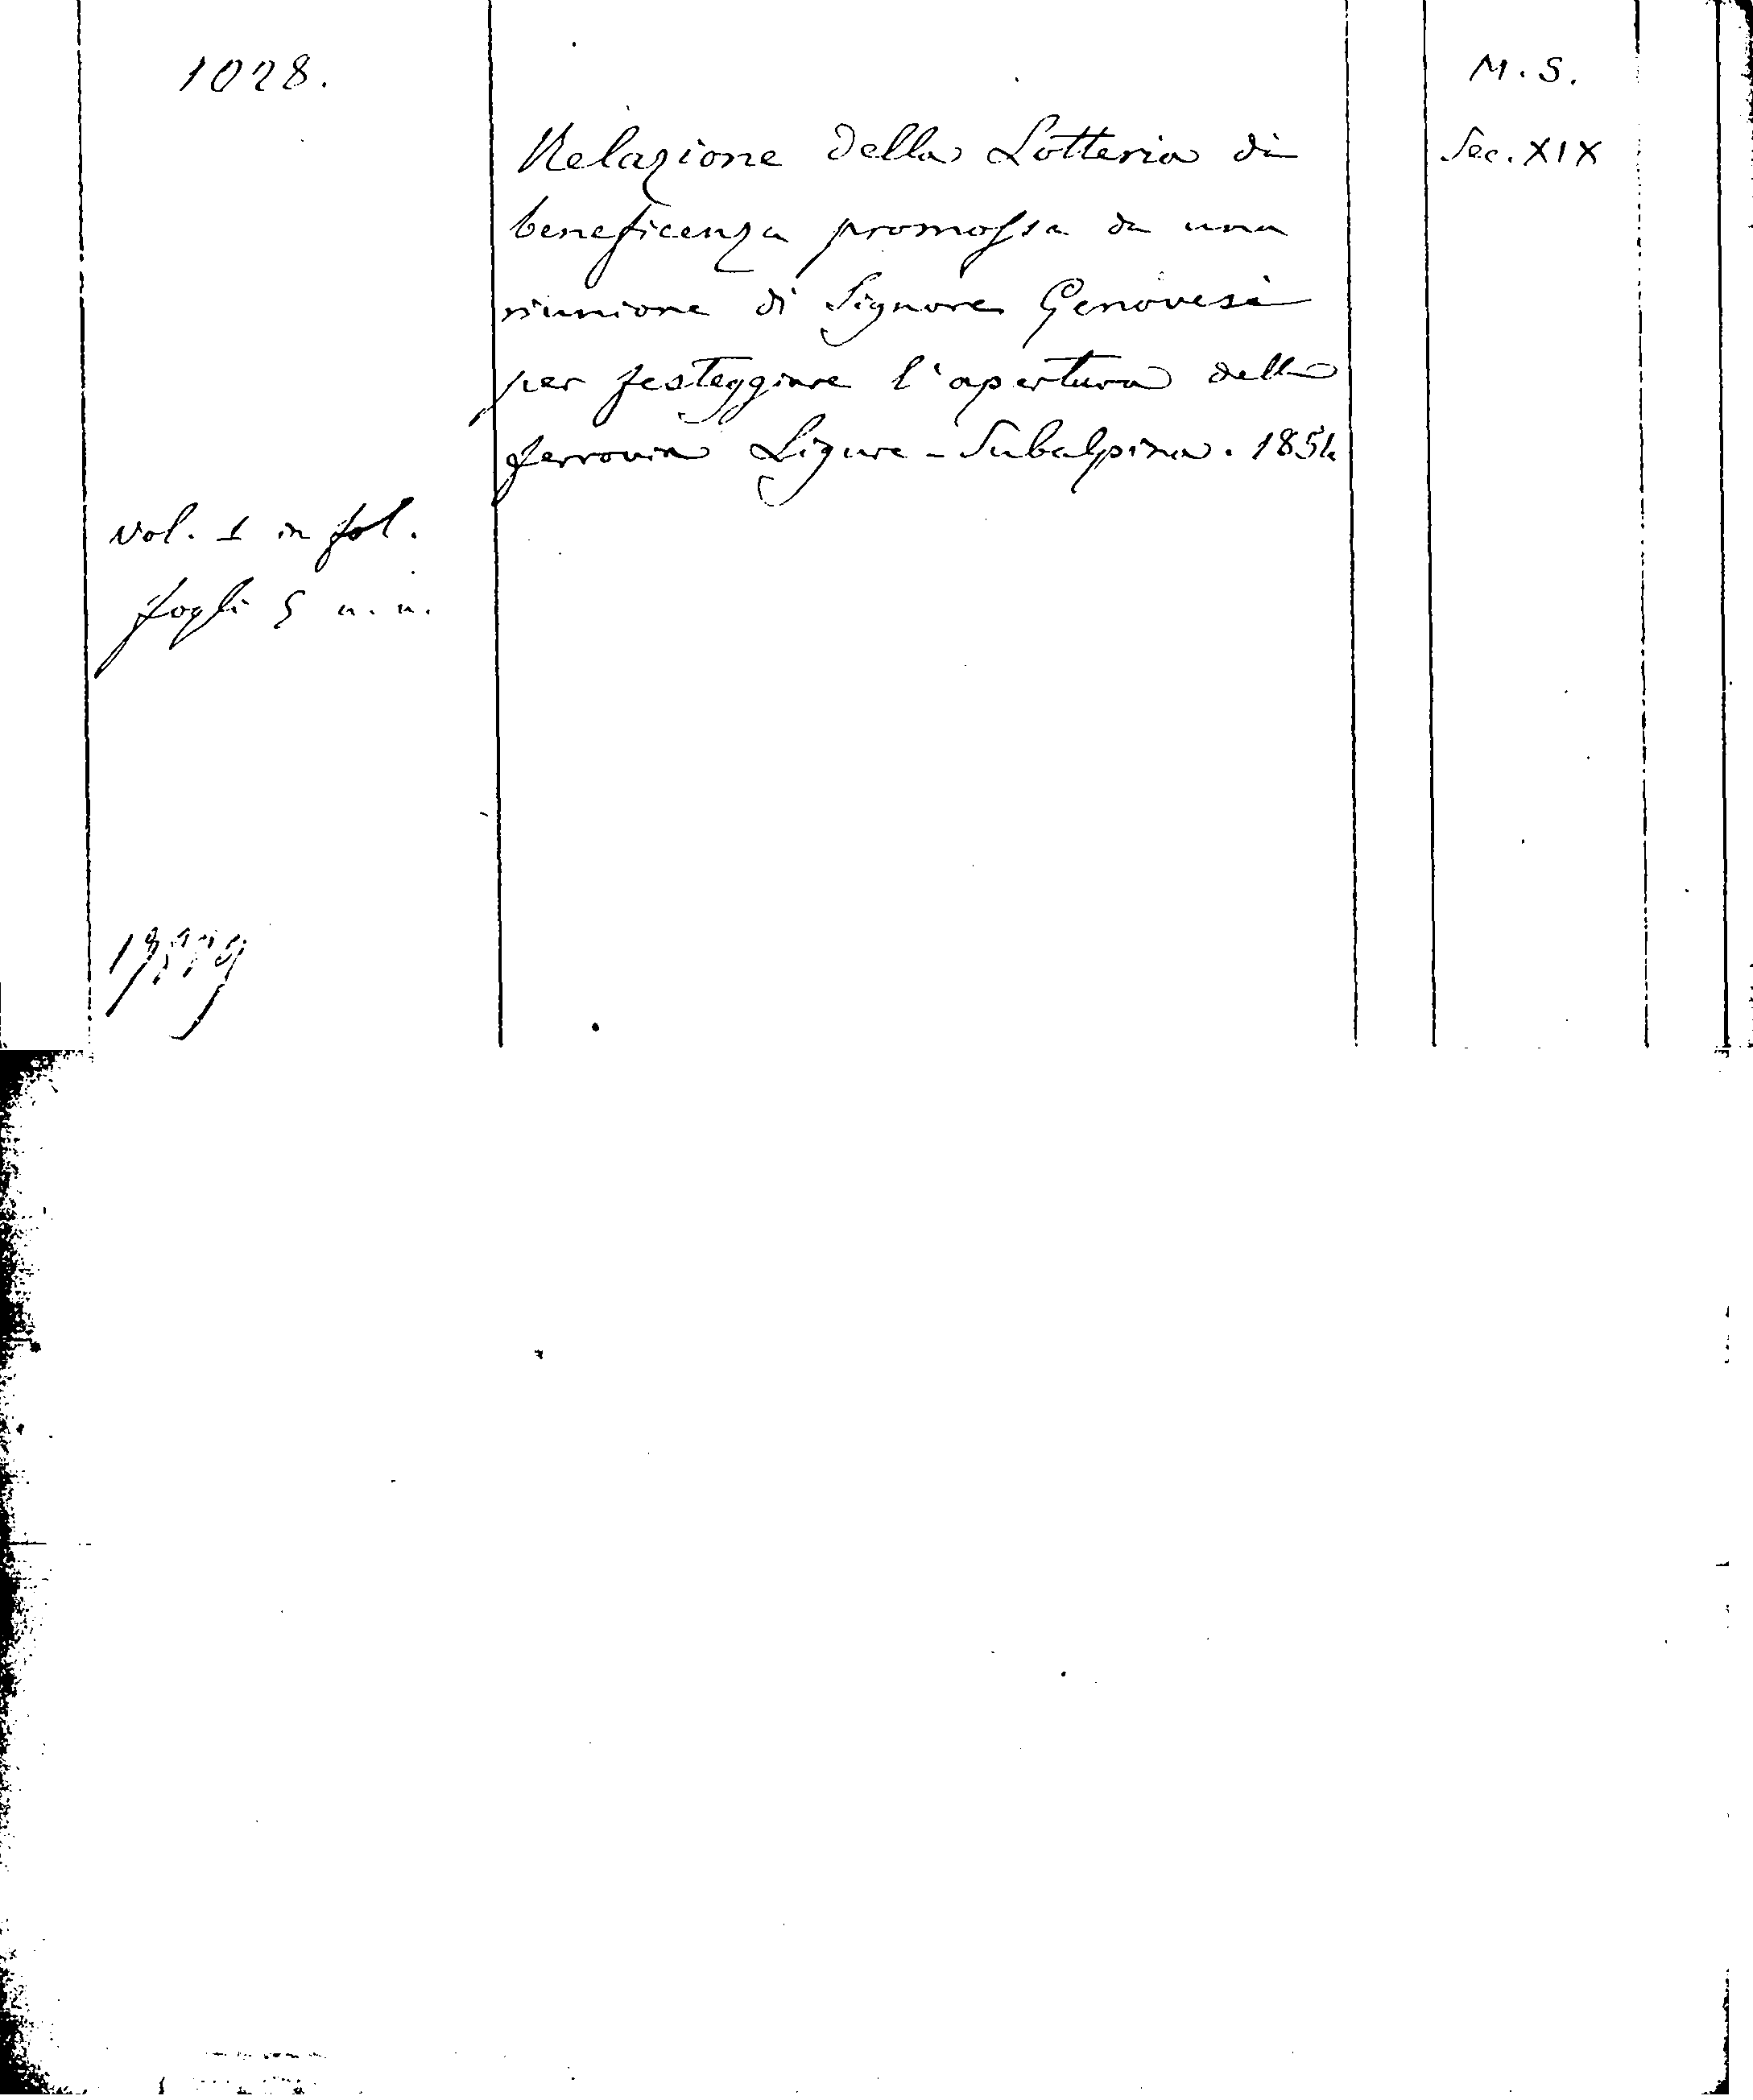 1028.
M. S.
Sec. XIX
Relazione della Lotteria di
beneficenza promossa da una
riunione di Signore Genovesi
per festeggiare l'apertura della
ferrovia Ligure - Subalpina. 1854
vol. 1 in fol.
fogli 5 n. n.